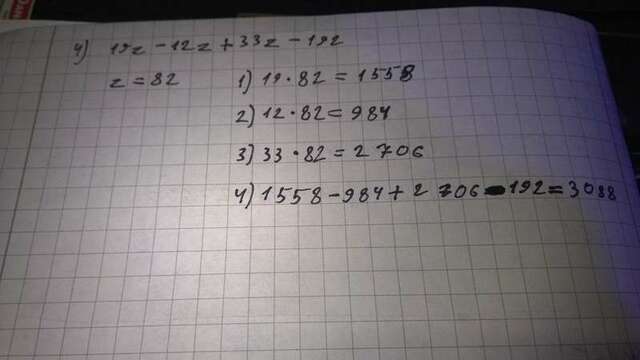 4) 19z - 12z + 33z - 192
z = 82 1) 19 · 82 = 1558
2) 12 · 82 = 984
3) 33 · 82 = 2 706
4) 1558 - 984 + 2 706 - 192 = 3088